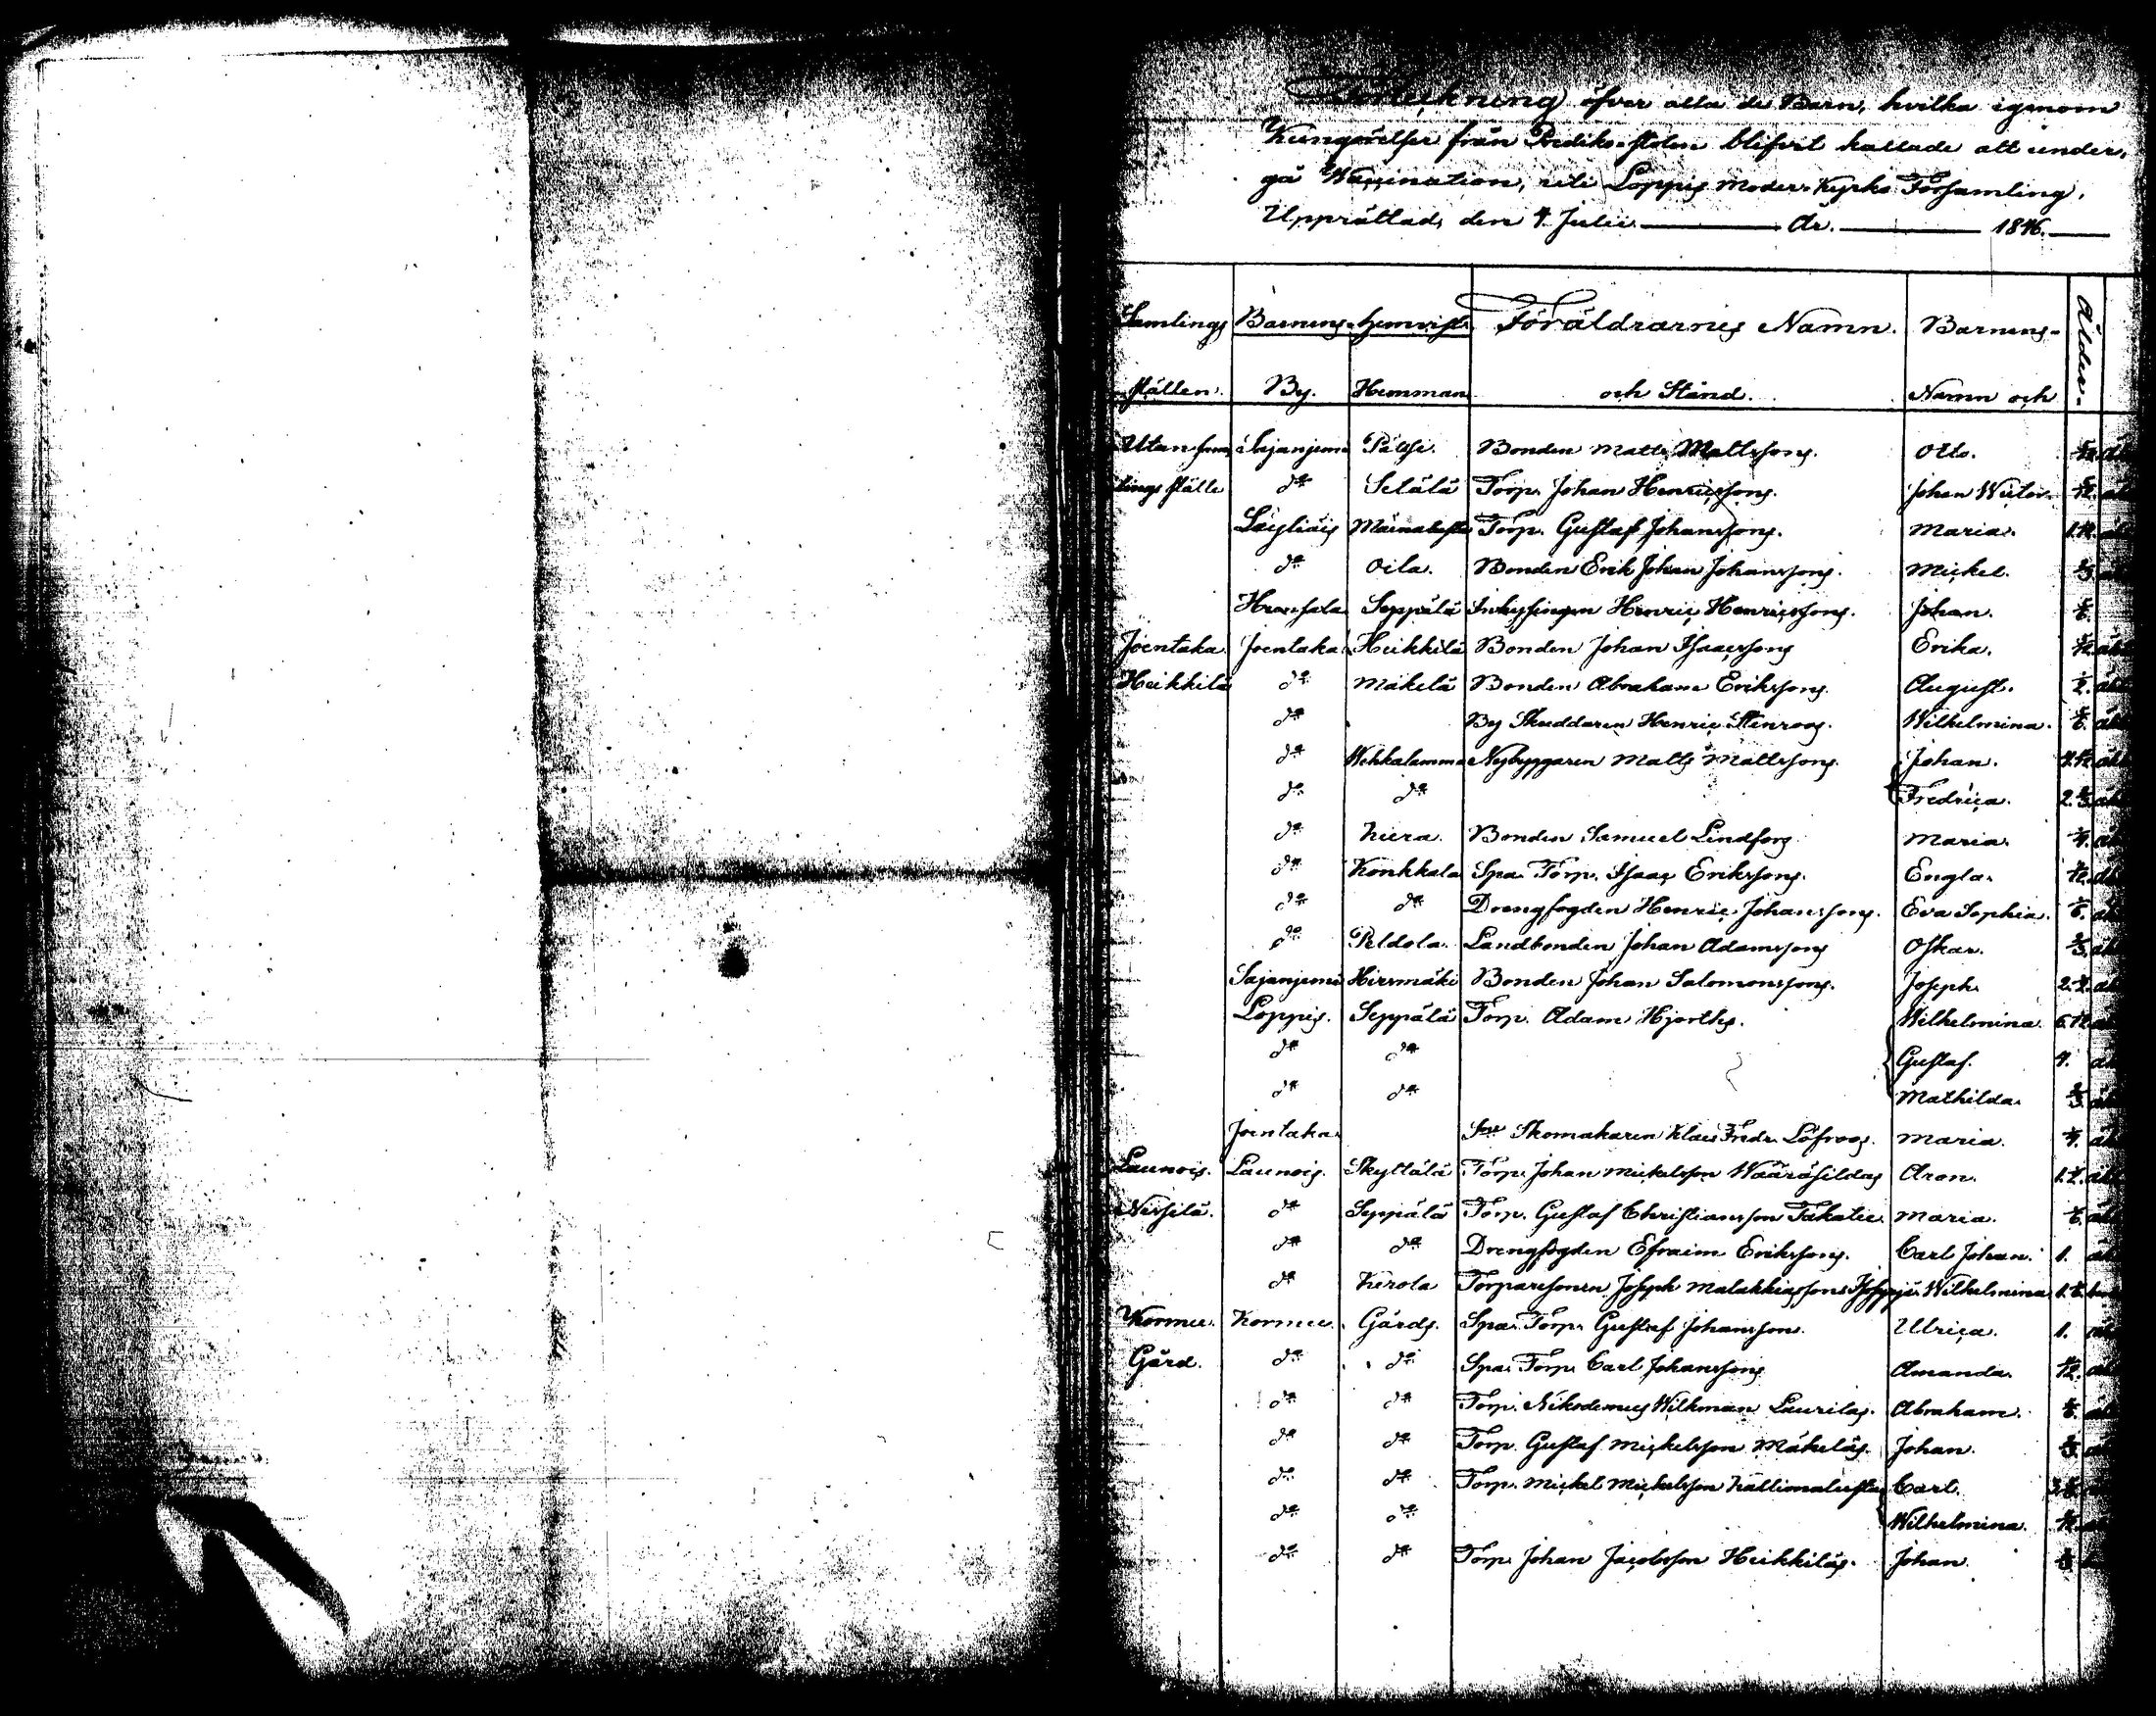 Förteckning öfver alla de Barn, hvilka igenom
Kungörelser från Prediko-stolen blifvit kallade att under,
gå Waccination, uti Loppis Moder-Kyrko Församling.
Upprättad, den 4. Julii. År. 1846.
Samlings Barnens hemvist. Föräldrarnes Namn. Barnens- Ålder.
ställen. By. Hemman och Stånd. Namn och
Utan sam Sajaniemi Bonden Matts Mattssons. Otto.
lings ställe do Setälä Torp. Johan Henricssons. Johan
Läyliäis Torp. Gustaf Johanssons. Maria.
do Oila. Bonden Erik Johan Johanssons. Mickel.
Seppälä Inhysingen Henric Henricssons. Johan.
Joentaka Joentaka Heikkilä Bonden Johan Isaacssons Erika.
Heikkilä do Mäkelä Bonden Abraham Erikssons. August.
do By Skreddaren Henric Stenroos. Wilhelmina.
do Wehkalammi Nybyggaren Matts Mattssons. Johan.
do do Fredrica.
do Bonden Samuel Lindfors Maria.
do Konkkala Spa. Torp. Isaac Erikssons. Engla.
do do Drengfogden Henric Johanssons. Eva Sophia.
do Peldola. Landbonden Johan Adamssons Oskar.
Sajaniemi Hirsmäki Bonden Johan Salomonssons. Joseph.
Loppis. Seppälä Torp. Adam Hjorths. Wilhelmina.
do do Gustaf. 4.
do do Mathilda.
Joentaka Skomakaren Klaes Fredr. Löfroos. Maria.
Launois. Launois. Skyttälä Torp. Johan Mickelsson Wääräsildas Aron.
do Seppälä Torp. Gustaf Christiansson Maria.
do do Drengfogden Efraim Erikssons. Carl Johan. 1.
do Torparesonen Joseph Wilhelmina
Kormu. Kormu. Gårds. Spa. Torp. Gustaf Johansson. Ulrica. 1.
Gård. do do Spa. Torp. Carl Johanssons Amanda.
do do Torp. Nikodemus Wilkman Laurilas. Abraham.
do do Torp. Gustaf Mickelsson Mäkeläs. Johan.
do do Torp. Mickel Mickelsson Carl.
do do Wilhelmina.
do do Torp. Johan Jacobsson Heikkiläs. Johan